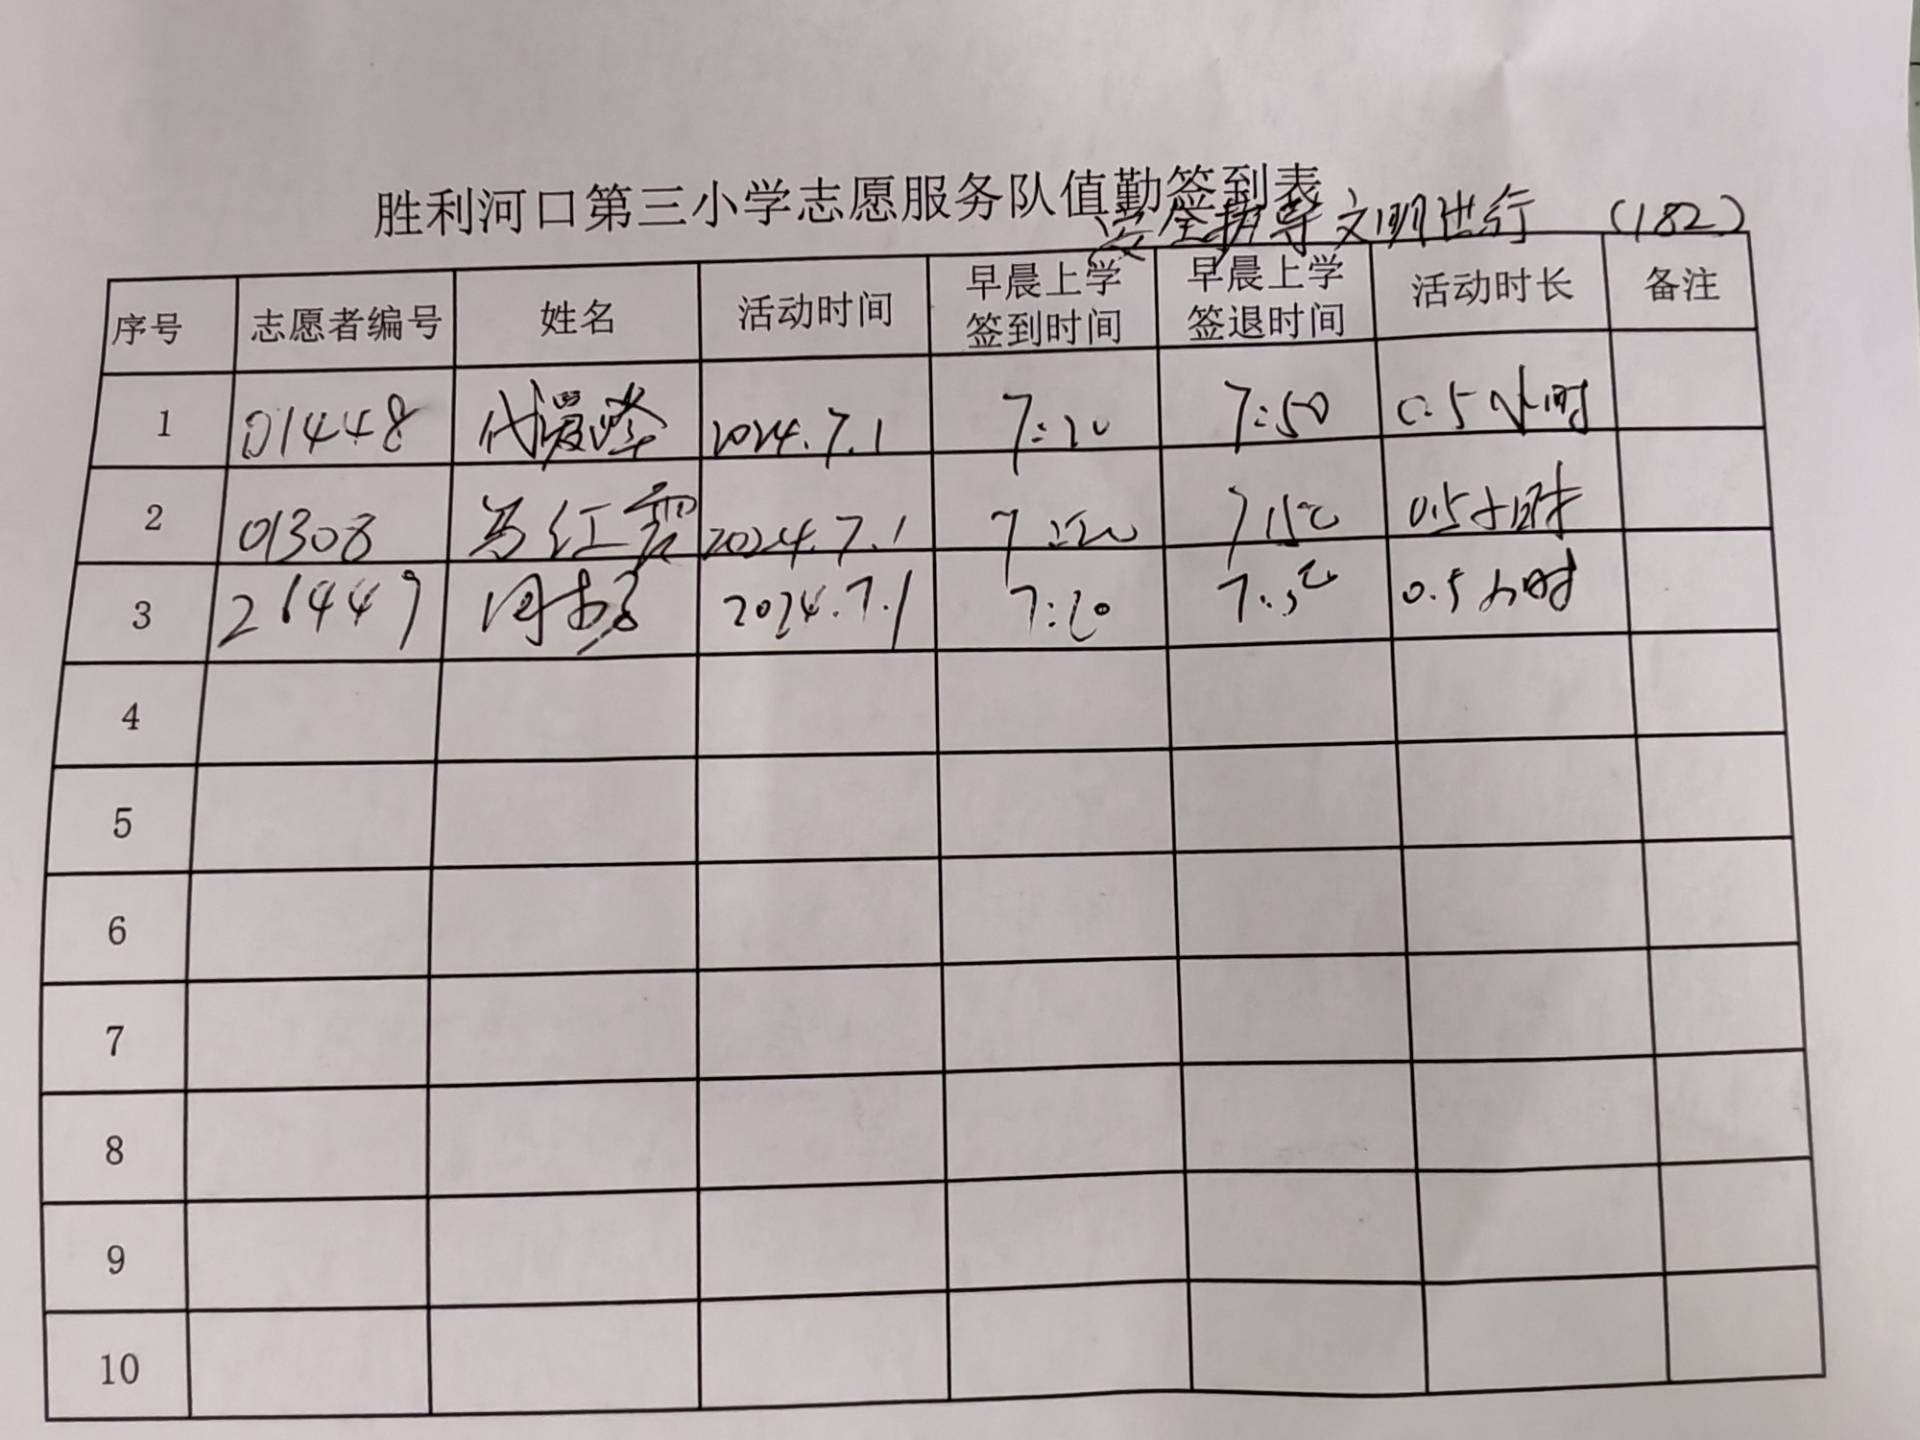 胜利河口第三小学志愿服务队值勤签到表
安全护导 文明出行 (182)
序号 志愿者编号 姓名 活动时间 早晨上学签到时间 早晨上学签退时间 活动时长 备注
1 01448 代 2024.7.1 7:20 7:50 0.5小时
2 01308 马红霞 2024.7.1 7:20 7:50 0.5小时
3 21449 周 2024.7.1 7:20 7:50 0.5小时
4
5
6
7
8
9
10